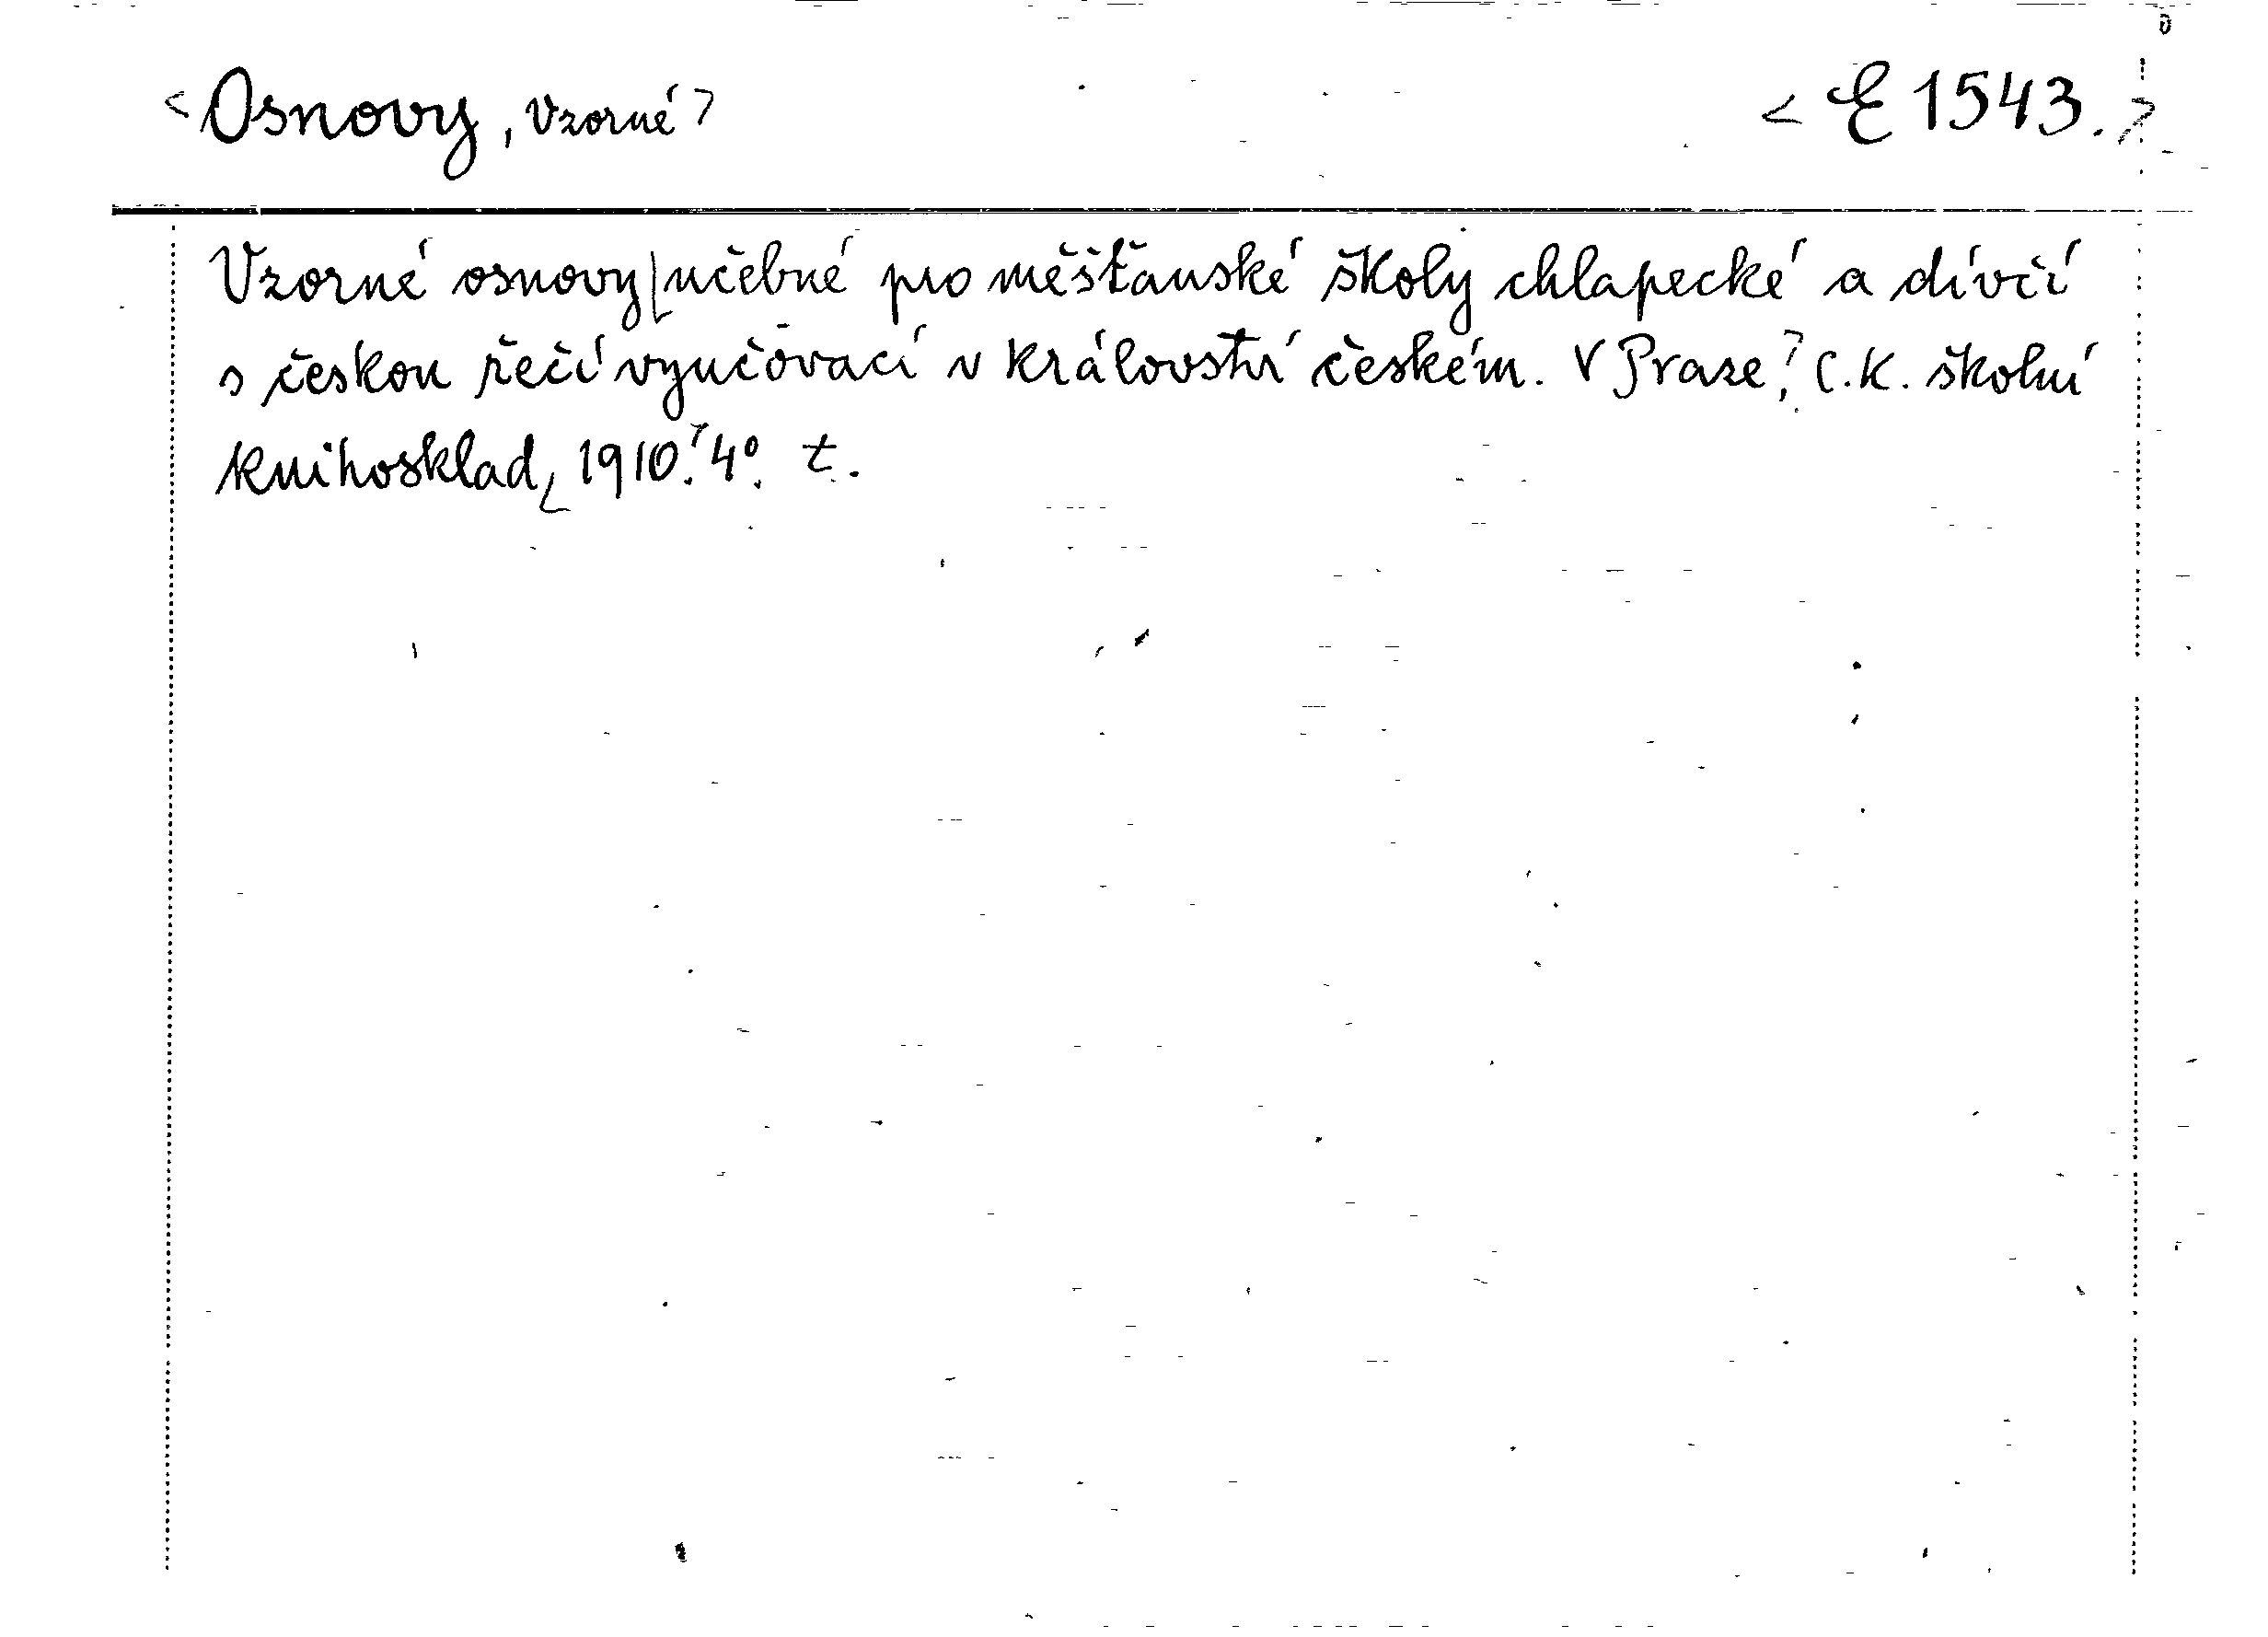 <Osnovy, Vzorné> <E 1543.>
Vzorné osnovy učebné pro měšťanské školy chlapecké a dívčí
s českou řečí vyučovací v království českém. V Praze, C.K. školní
knihosklad, 1910. 4°. t.